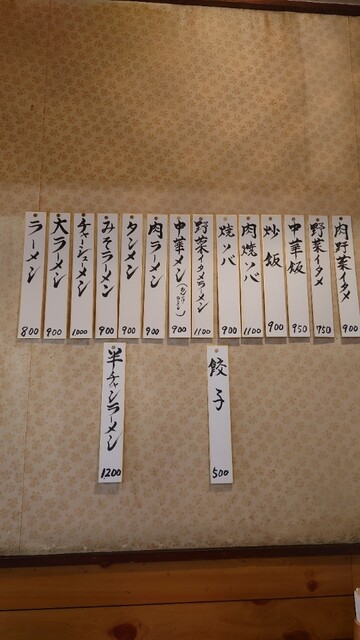 ラーメン 800
大ラーメン 900
チャーシューメン 1000
みそラーメン 900
タンメン 900
肉ラーメン 900
中華メン 900
野菜イタメラーメン 1100
焼ソバ 900
肉焼ソバ 1100
炒飯 900
中華飯 950
野菜イタメ 750
肉野菜イタメ 900
半チャンラーメン 1200
餃子 500